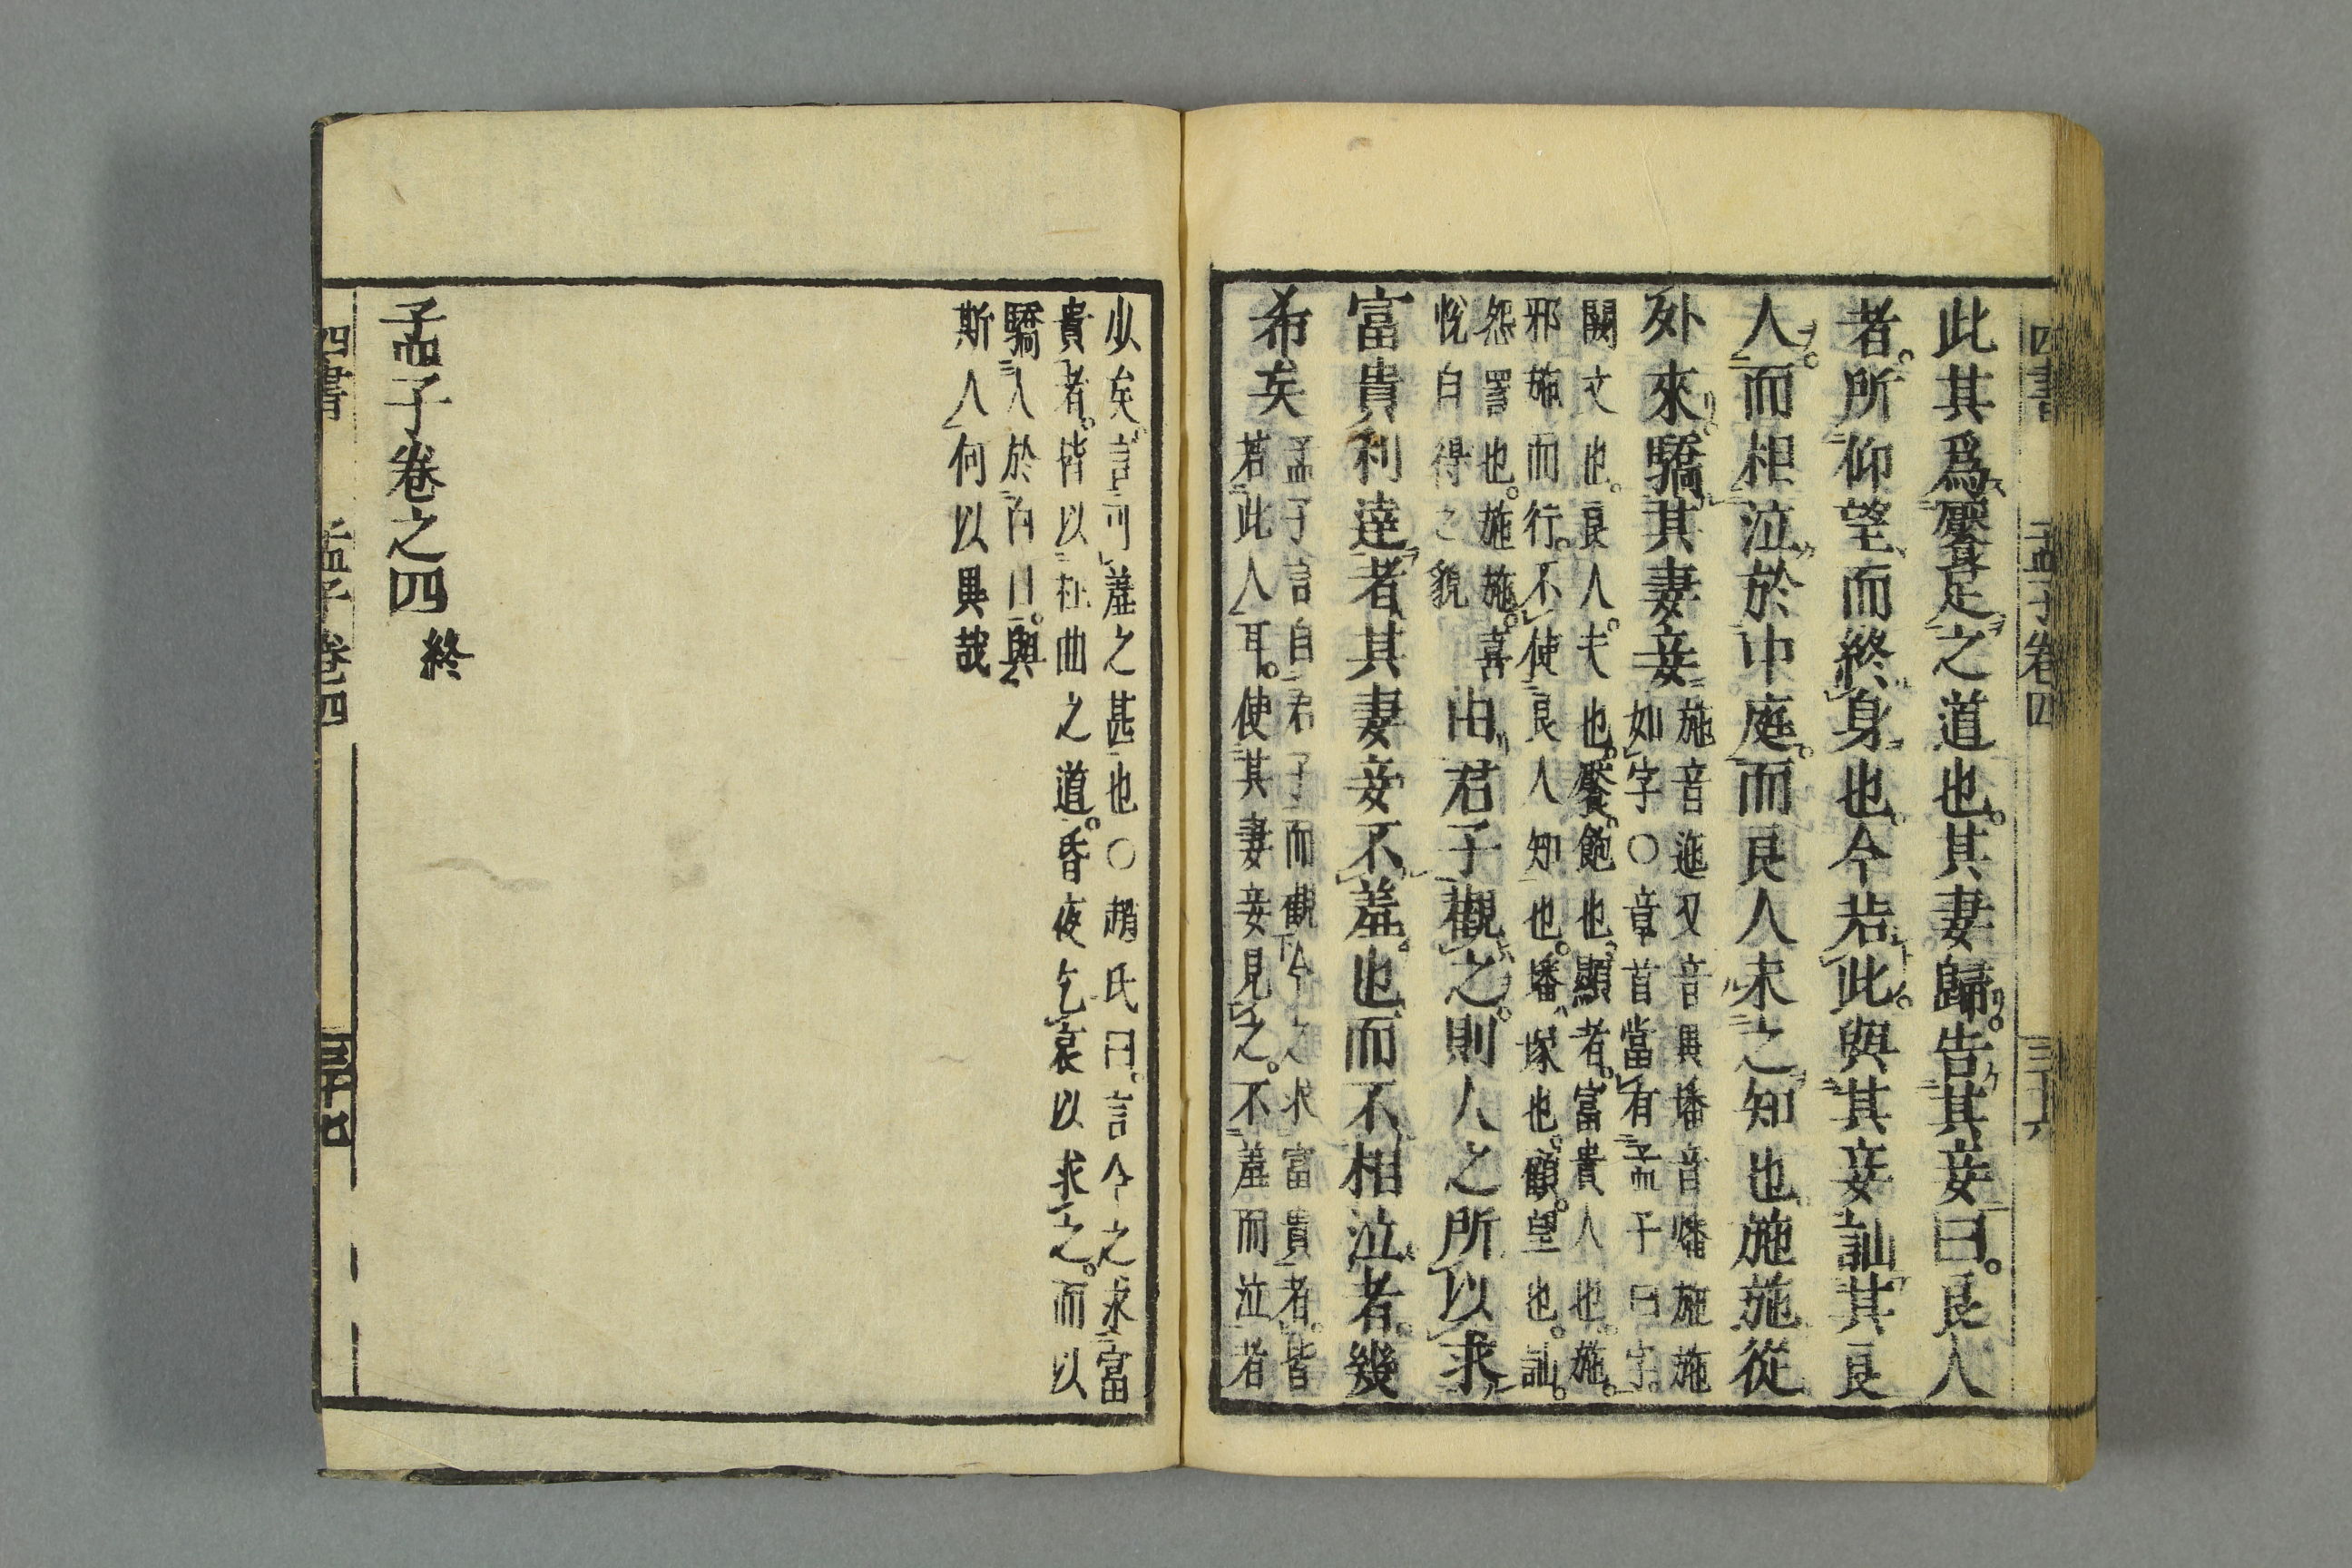 四書 孟子卷四 三十六
此其爲饜足之道也。其妻歸。告其妾曰。良人
者。所仰望而終身也。今若此。與其妾訕其良
人。而相泣於中庭。而良人未之知也。施施從
外來。驕其妻妾
施音迤又音異墦音燔施施
如字○章首當有孟子曰字
闕文也。良人。夫也。饜。飽也。顯者。富貴人也。施。
邪施而行。不使良人知也。墦。塚也。顧。望也。訕。
怨詈也。施施。喜
悅自得之貌
由君子觀之。則人之所以求
富貴利達者。其妻妾不羞也。而不相泣者。幾
希矣
孟子言自君子而觀今之求富貴者。皆
若此人耳。使其妻妾見之。不羞而泣者
少矣。言可羞之甚也○趙氏曰。言今之求富
貴者。皆以枉曲之道。昏夜乞哀以求之。而以
驕人於白日。與
斯人何以異哉
孟子卷之四 終
四書 孟子卷四 三十七